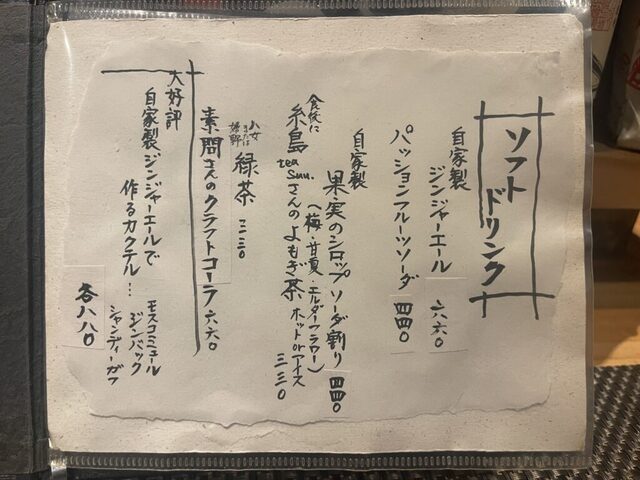 ソフトドリンク
自家製
ジンジャーエール 六六〇
パッションフルーツソーダ 四四〇
自家製
果実のシロップソーダ割り 四四〇
(梅・甘夏・エルダーフラワー)
食後に
糸島 tea Suu. さんのよもぎ茶 ホット or アイス 三三〇
八女または嬉野 緑茶 三三〇
素問さんのクラフトコーラ 六六〇
大好評
自家製ジンジャーエールで
作るカクテル…
モスコミュール
ジンバック
シャンディーガフ
各八八〇